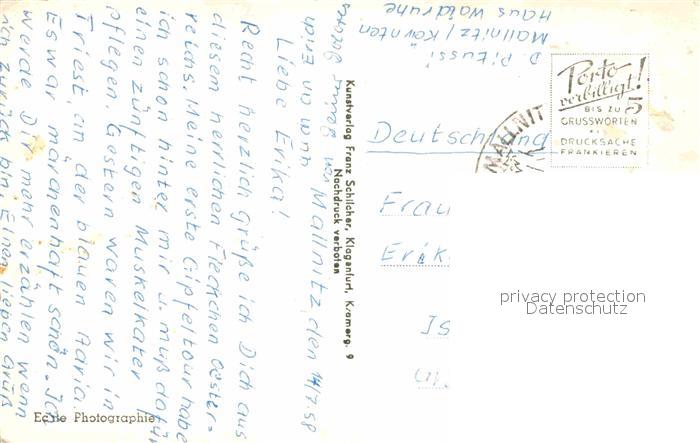 Mallnitz, den 14/7.58
Liebe Erika!
Recht herzlich grüße ich Dich aus
diesem herrlichen Fleckchen Öster=
reichs. Meine erste Gipfeltour habe
ich schon hinter mir u. muß dafür
einen zünftigen Muskelkater
pflegen. Gestern waren wir in
Triest, an der blauen Adria.
Es war märchenhaft schön. Ich
werde Dir mehr erzählen wenn
ich zurück bin. Einen lieben Gruß
Echte Photographie
Kunstverlag Franz Schilcher, Klagenfurt, Kramerg. 9
Nachdruck verboten
D. Pitussi
Mallnitz / Kärnten
Haus Waldruhe
MALLNIT
Porto
verbilligt!
BIS ZU 5
GRUSSWORTEN
ALS
DRUCKSACHE
FRANKIEREN
Deutschland
Frau
Erik
privacy protection
Datenschutz